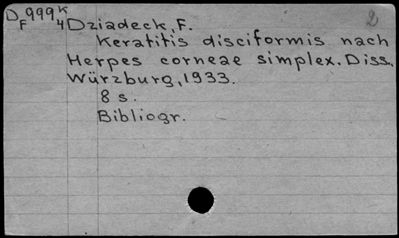 D999K 2
F 4 Dziadeck, F.
Keratitis disciformis nach
Herpes corneae simplex. Diss.
Würzburg, 1933.
8 s.
Bibliogr.